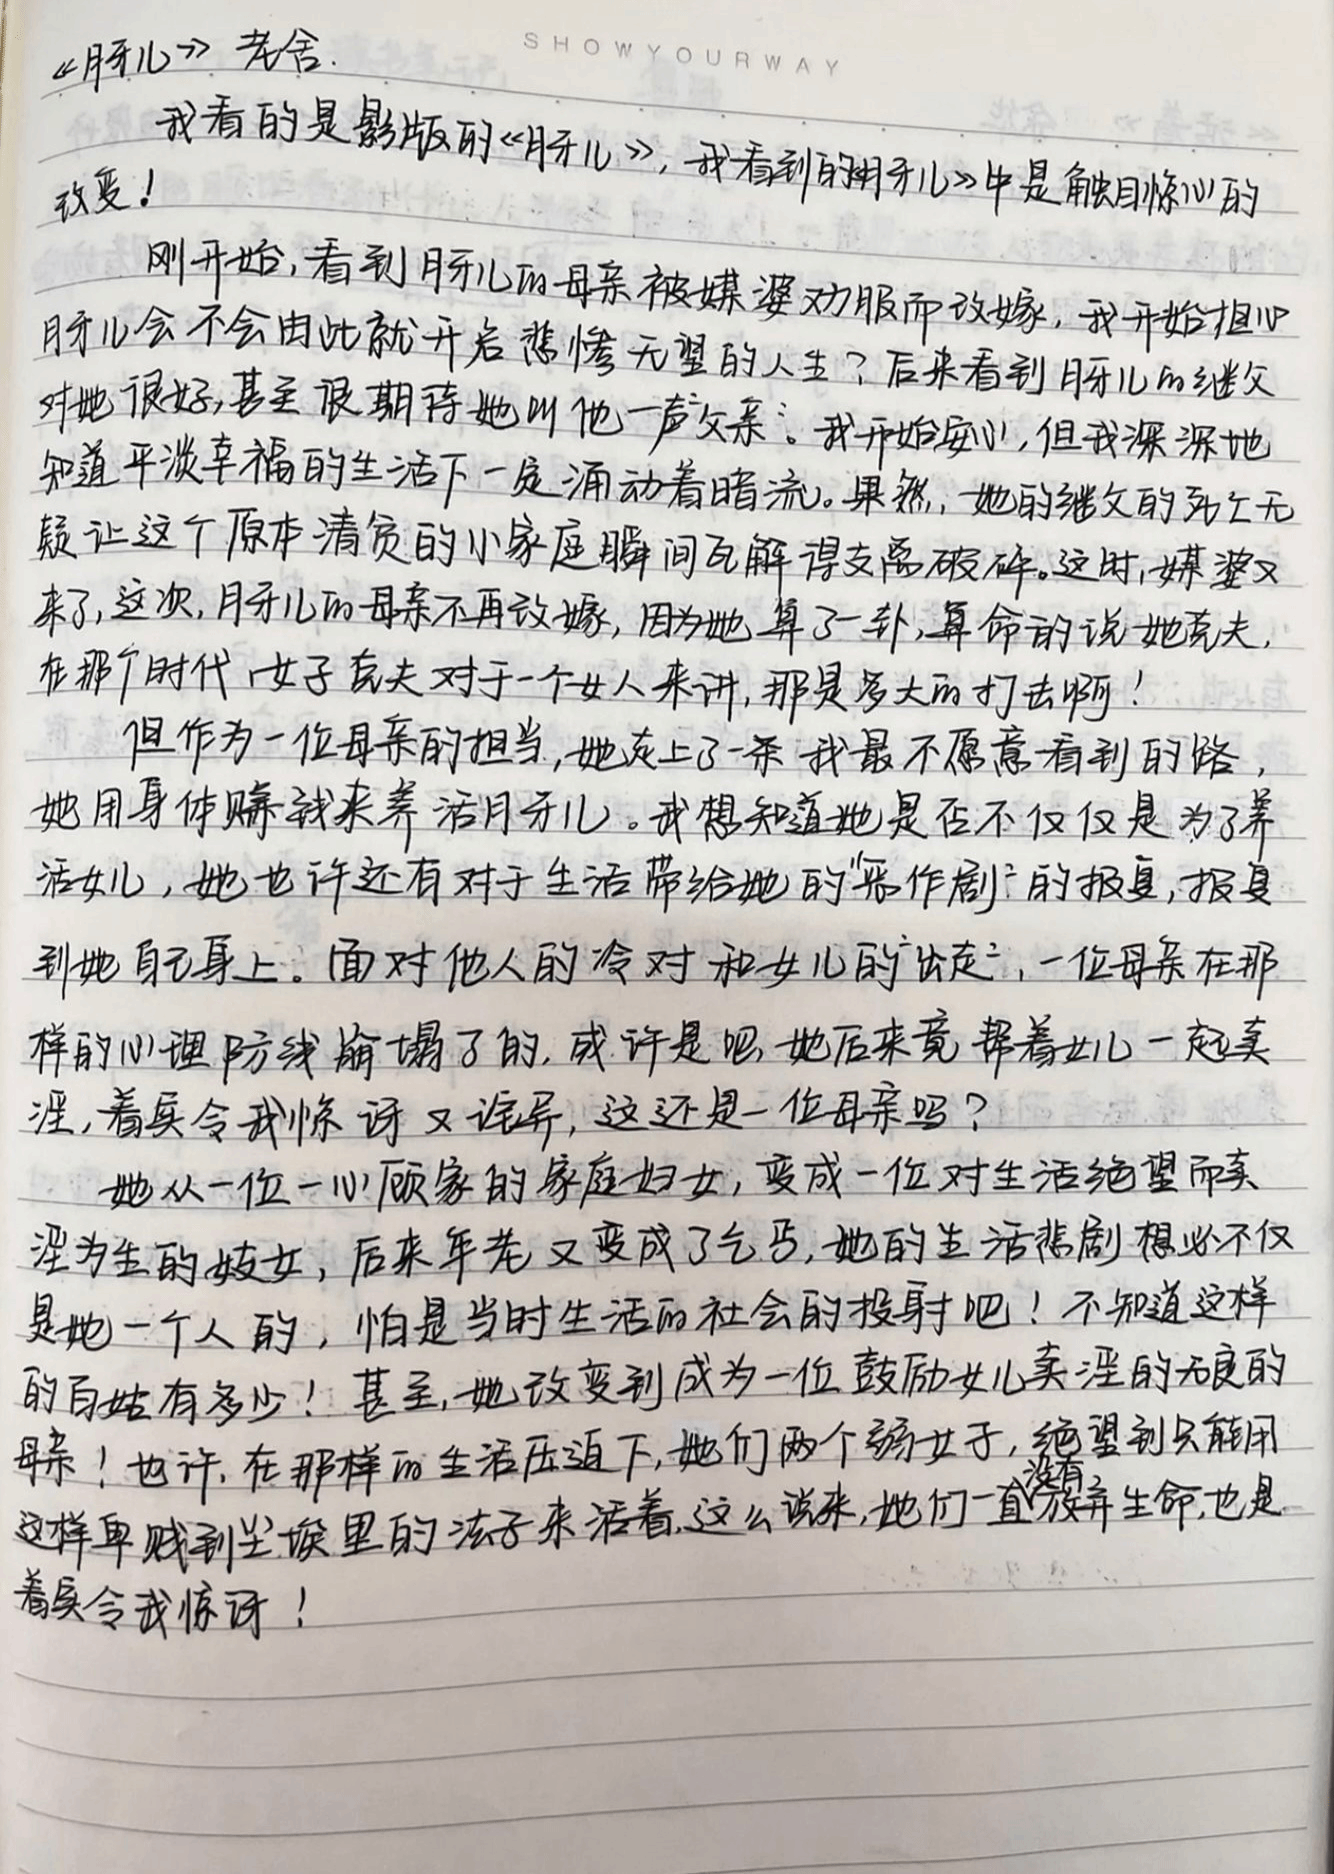 SHOWYOURWAY
《月牙儿》 老舍.
我看的是影版的《月牙儿》,我看到的《月牙儿》中是触目惊心的
改变!
刚开始,看到月牙儿的母亲被媒婆劝服而改嫁,我开始担心
月牙儿会不会由此就开启悲惨无望的人生?后来看到月牙儿的继父
对她很好,甚至很期待她叫他一声“父亲”。我开始安心,但我深深地
知道平淡幸福的生活下一定涌动着暗流。果然,她的继父的死亡无
疑让这个原本清贫的小家庭瞬间瓦解得支离破碎。这时,媒婆又
来了,这次,月牙儿的母亲不再改嫁,因为她算了一卦,算命的说她克夫,
在那个时代,女子克夫对于一个女人来讲,那是多大的打击啊!
但作为一位母亲的担当,她走上了一条我最不愿意看到的路,
她用身体赚钱来养活月牙儿。我想知道她是否不仅仅是为了养
活女儿,她也许还有对于生活带给她的“恶作剧”的报复,报复
到她自己身上。面对他人的冷对和女儿的“出走”,一位母亲在那
样的心理防线崩塌了的,或许是吧,她后来竟帮着女儿一起卖
淫,着实令我惊讶又诧异,这还是一位母亲吗?
她从一位一心顾家的家庭妇女,变成一位对生活绝望而卖
淫为生的妓女,后来年老又变成了乞丐,她的生活悲剧想必不仅
是她一个人的,怕是当时生活的社会的投射吧!不知道这样
的百姓有多少!甚至,她改变到成为一位鼓励女儿卖淫的无良的
母亲!也许,在那样的生活压迫下,她们两个弱女子,绝望到只能用
这样卑贱到尘埃里的法子来活着,这么说来,她们一直没有放弃生命,也是
着实令我惊讶!